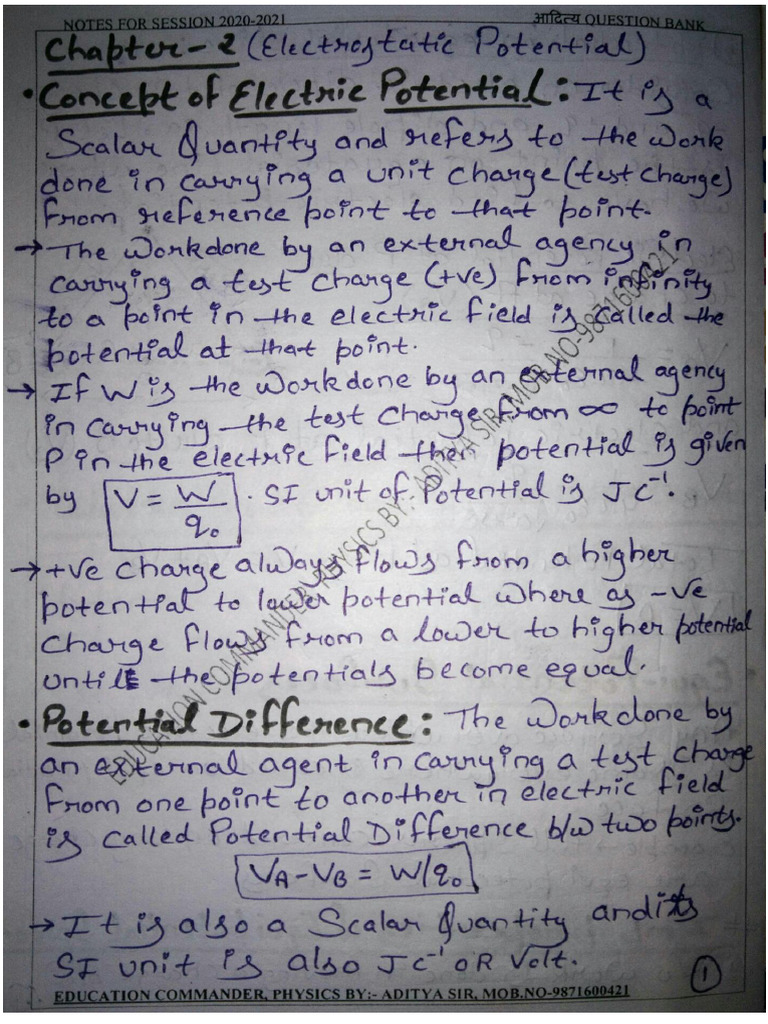 NOTES FOR SESSION 2020-2021 आदित्य QUESTION BANK
Chapter-2 (Electrostatic Potential)
• Concept of Electric Potential: It is a
Scalar Quantity and refers to the work
done in carrying a unit charge (test charge)
from reference point to that point.
→ The workdone by an external agency in
carrying a test charge (+ve) from infinity
to a point in the electric field is called the
potential at that point.
→ If W is the workdone by an external agency
in carrying the test charge from ∞ to point
P in the electric field then potential is given
by V = W/q₀ . SI unit of Potential is J C⁻¹.
→ +ve charge always flows from a higher
potential to lower potential where as -ve
charge flows from a lower to higher potential
until the potentials become equal.
• Potential Difference: The workdone by
an external agent in carrying a test charge
from one point to another in electric field
is called Potential Difference b/w two points.
V_A - V_B = W/q₀
→ It is also a Scalar Quantity and its
SI unit is also J C⁻¹ OR Volt.
1
EDUCATION COMMANDER, PHYSICS BY:- ADITYA SIR, MOB.NO-9871600421
EDUCATION COMMANDER, PHYSICS BY:- ADITYA SIR, MOB.NO-9871600421